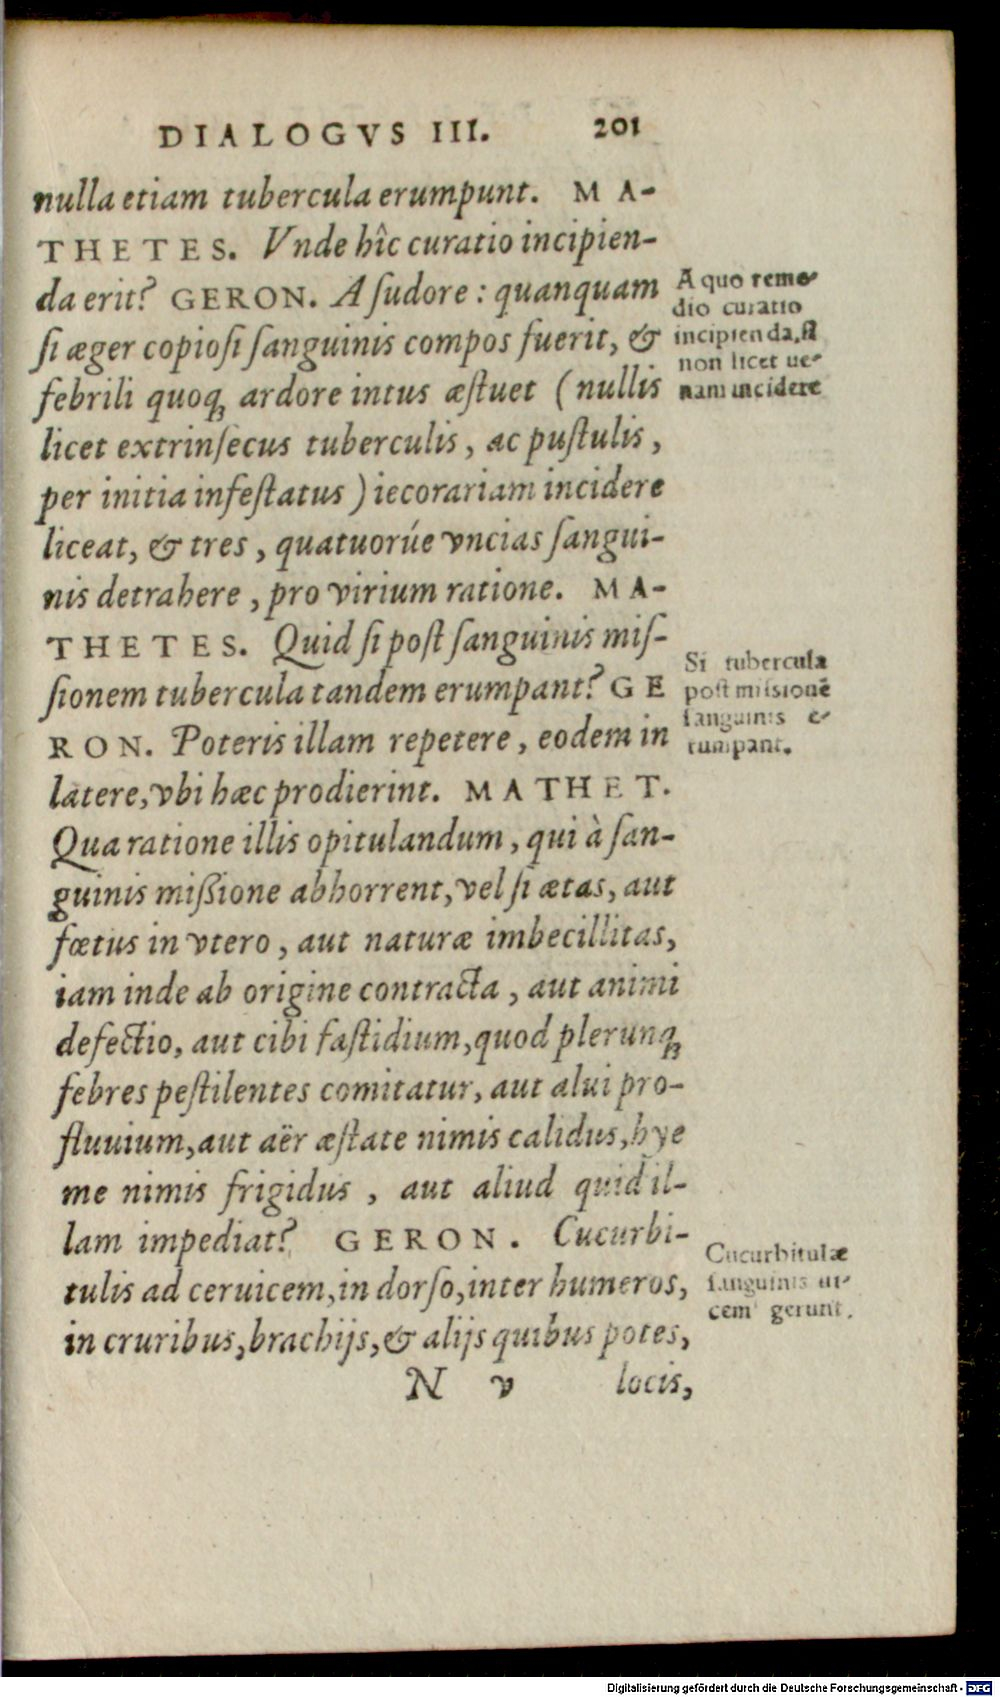 DIALOGVS III. 201
nulla etiam tubercula erumpunt. MA-
THETES. Vnde hîc curatio incipien-
da erit? GERON. A ſudore: quanquam
ſi æger copioſi ſanguinis compos fuerit, &
febrili quoq; ardore intus æſtuet (nullis
licet extrinſecus tuberculis, ac puſtulis,
per initia infeſtatus) iecorariam incidere
liceat, & tres, quatuorúe vncias ſangui-
nis detrahere, pro virium ratione. MA-
THETES. Quid ſi poſt ſanguinis miſ-
ſionem tubercula tandem erumpant? GE
RON. Poteris illam repetere, eodem in
latere, vbi hæc prodierint. MATHET.
Qua ratione illis opitulandum, qui à ſan-
guinis miſsione abhorrent, vel ſi ætas, aut
fœtus in vtero, aut naturæ imbecillitas,
iam inde ab origine contracta, aut animi
defectio, aut cibi faſtidium, quod plerunq;
febres peſtilentes comitatur, aut alui pro-
fluuium, aut aër æſtate nimis calidus, hye
me nimis frigidus, aut aliud quid il-
lam impediat? GERON. Cucurbi-
tulis ad ceruicem, in dorſo, inter humeros,
in cruribus, brachijs, & alijs quibus potes,
N v locis,
A quo reme-
dio curatio
incipienda, ſi
non licet ue-
nam incidere
Si tubercula
poſt miſsionē
ſanguinis e-
rumpant.
Cucurbitulæ
ſanguinis ui-
cem gerunt.
Digitalisierung gefördert durch die Deutsche Forschungsgemeinschaft - DFG